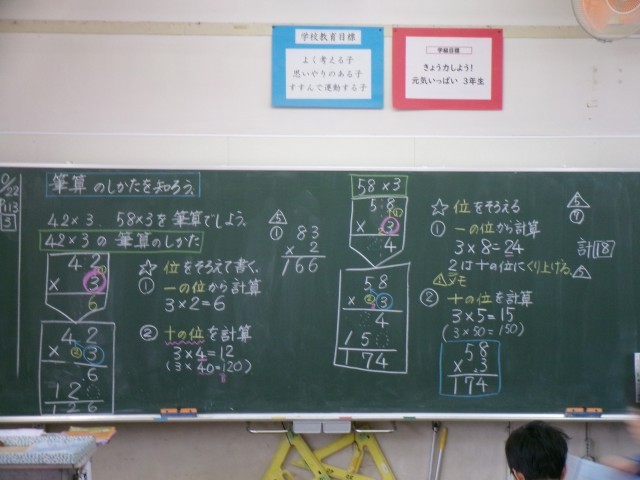 学校教育目標
よく考える子
思いやりのある子
すすんで運動する子
学級目標
きょう力しよう!
元気いっぱい 3年生
P.13
3
筆算のしかたを知ろう。
42×3、58×3を筆算でしよう。
42×3の筆算のしかた
42
×3
6
☆位をそろえて書く。
①一の位から計算
3×2=6
42
×3
6
12
126
②十の位を計算
3×4=12
(3×40=120)
①
83
×2
166
58×3
58
×3
4
58
×3
4
15
174
☆位をそろえる
①一の位から計算
3×8=24
2は十の位にくり上げる
メモ
②十の位を計算
3×5=15
(3×50=150)
58
×3
174
計18